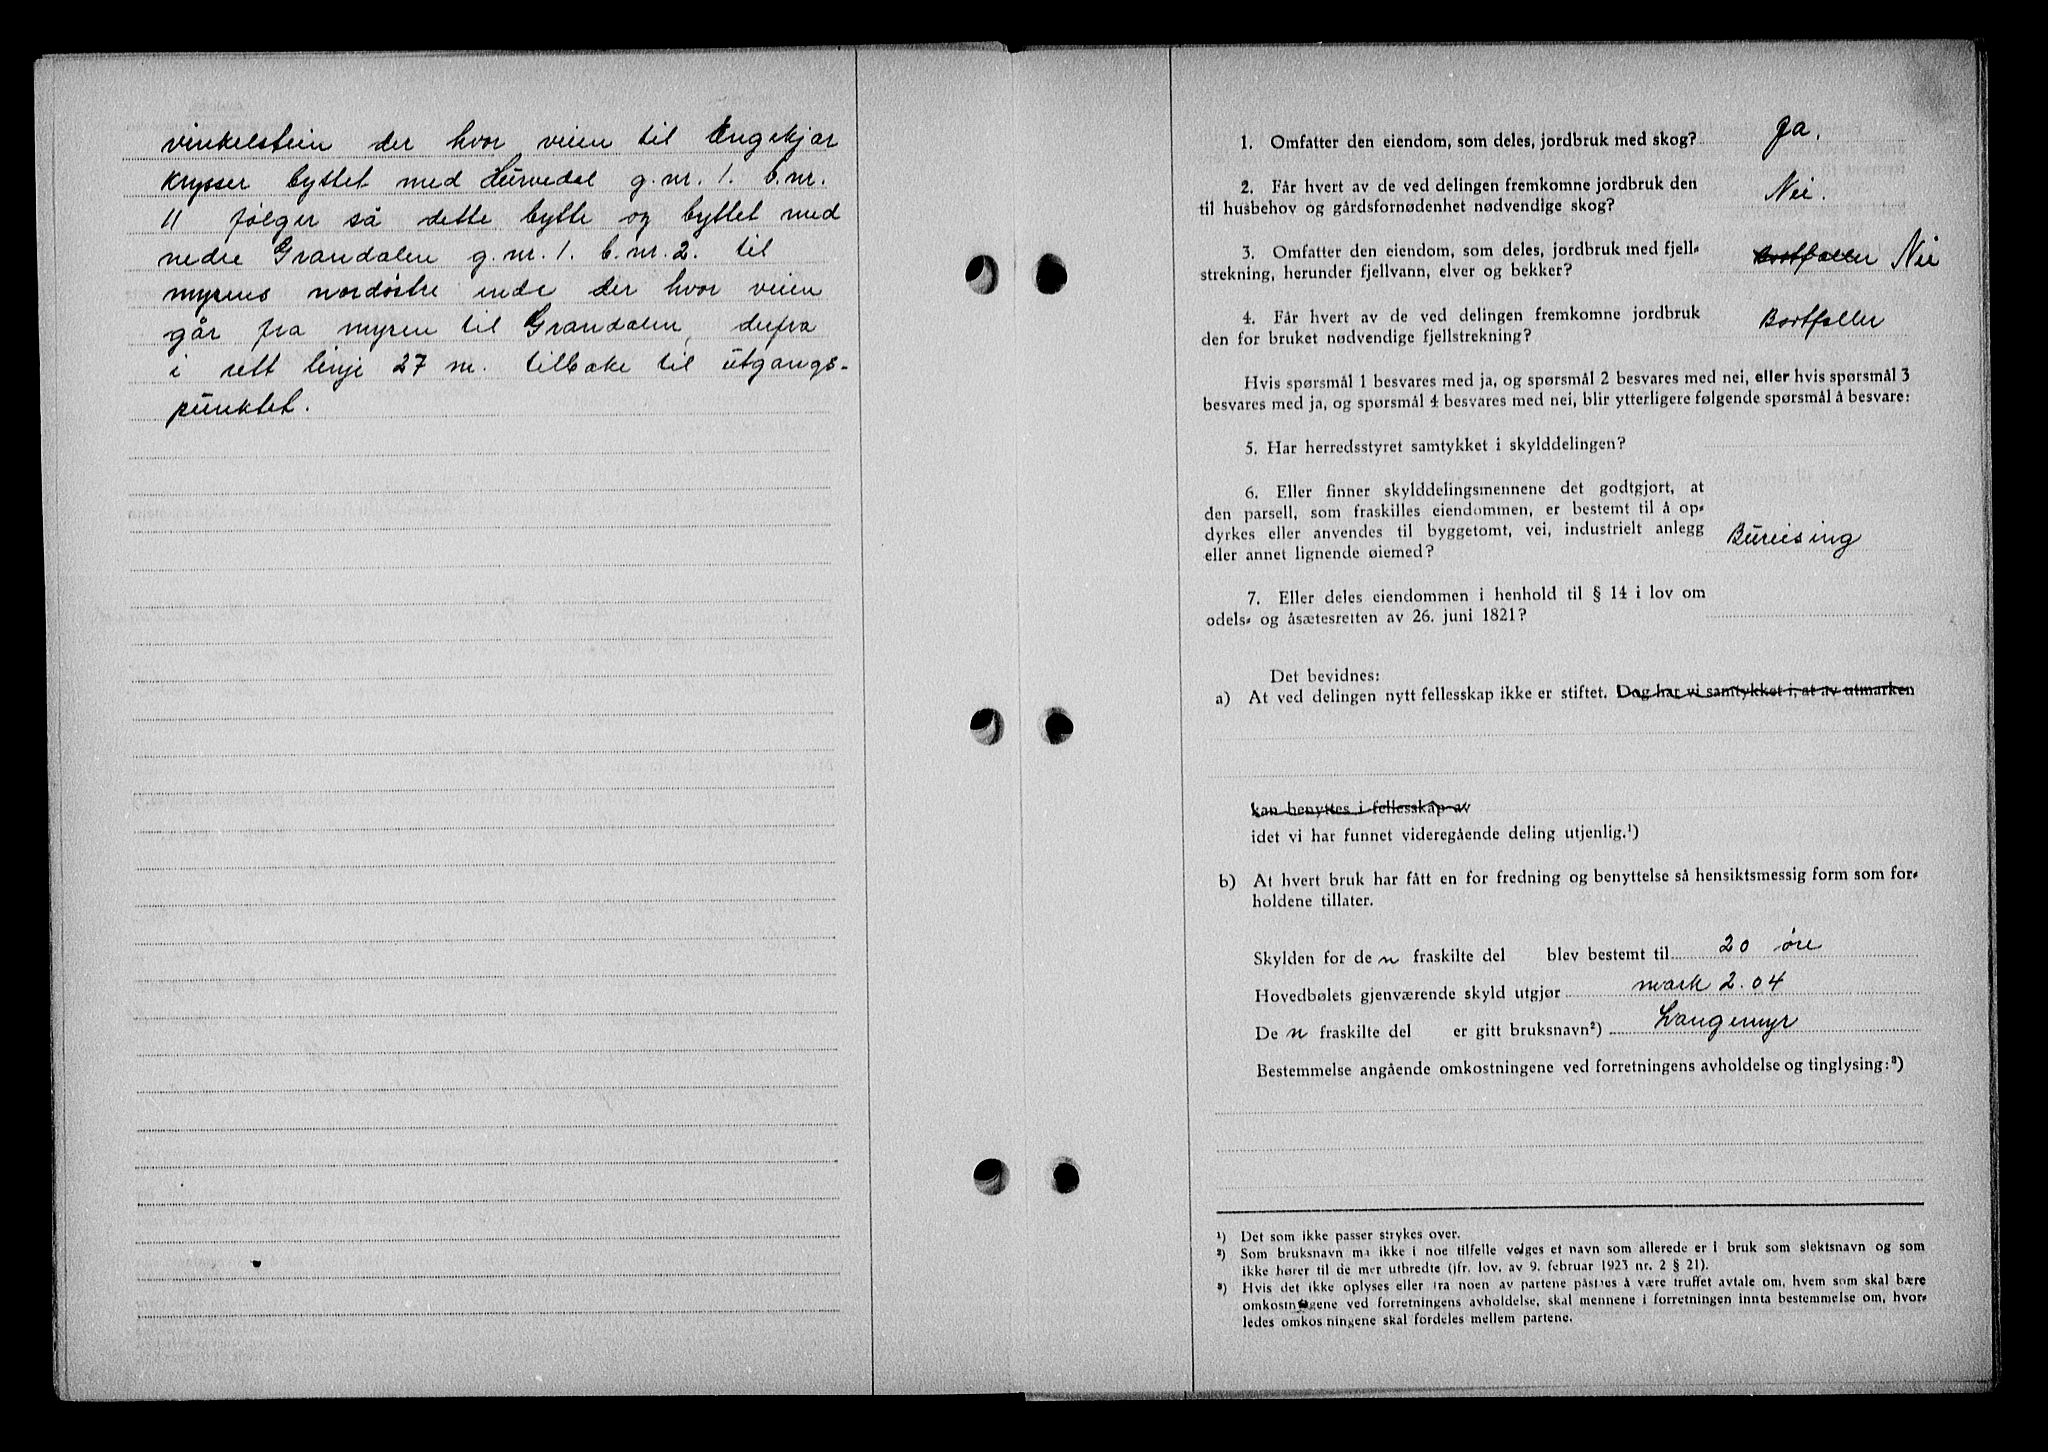 vinkelstein der hvor veien til Engekjær
krysser byttet med Hurvedal g.nr. 1. b.nr.
11 følger så dette bytte og byttet med
nedre Grandalen g.nr. 1. b.nr. 2. til
myrens nordøstre ende der hvor veien
går fra myren til Grandalen, derfra
i rett linje 27 m. tilbake til utgangs-
punktet.
1. Omfatter den eiendom, som deles, jordbruk med skog? Ja.
2. Får hvert av de ved delingen fremkomne jordbruk den
til husbehov og gårdsfornødenhet nødvendige skog? Nei.
3. Omfatter den eiendom, som deles, jordbruk med fjell-
strekning, herunder fjellvann, elver og bekker? Bortfaller Nei
4. Får hvert av de ved delingen fremkomne jordbruk
den for bruket nødvendige fjellstrekning? Bortfaller
Hvis spørsmål 1 besvares med ja, og spørsmål 2 besvares med nei, eller hvis spørsmål 3
besvares med ja, og spørsmål 4 besvares med nei, blir ytterligere følgende spørsmål å besvare:
5. Har herredsstyret samtykket i skylddelingen?
6. Eller finner skylddelingsmennene det godtgjort, at
den parsell, som fraskilles eiendommen, er bestemt til å op-
dyrkes eller anvendes til byggetomt, vei, industrielt anlegg
eller annet lignende øiemed? Bureising
7. Eller deles eiendommen i henhold til § 14 i lov om
odels- og åsætesretten av 26. juni 1821?
Det bevidnes:
a) At ved delingen nytt fellesskap ikke er stiftet. Dog har vi samtykket i, at av utmarken
kan benyttes i fellesskap av
idet vi har funnet videregående deling utjenlig.¹)
b) At hvert bruk har fått en for fredning og benyttelse så hensiktsmessig form som for-
holdene tillater.
Skylden for de n fraskilte del blev bestemt til 20 øre
Hovedbølets gjenværende skyld utgjør mark 2.04
De n fraskilte del er gitt bruksnavn²) Langemyr
Bestemmelse angående omkostningene ved forretningens avholdelse og tinglysing:³)
¹) Det som ikke passer strykes over.
²) Som bruksnavn må ikke i noe tilfelle velges et navn som allerede er i bruk som slektsnavn og som
ikke hører til de mer utbredte (jfr. lov. av 9. februar 1923 nr. 2 § 21).
³) Hvis det ikke oplyses eller fra noen av partene påstås å være truffet avtale om, hvem som skal bære
omkostningene ved forretningens avholdelse, skal mennene i forretningen innta bestemmelse om, hvor-
ledes omkostningene skal fordeles mellem partene.